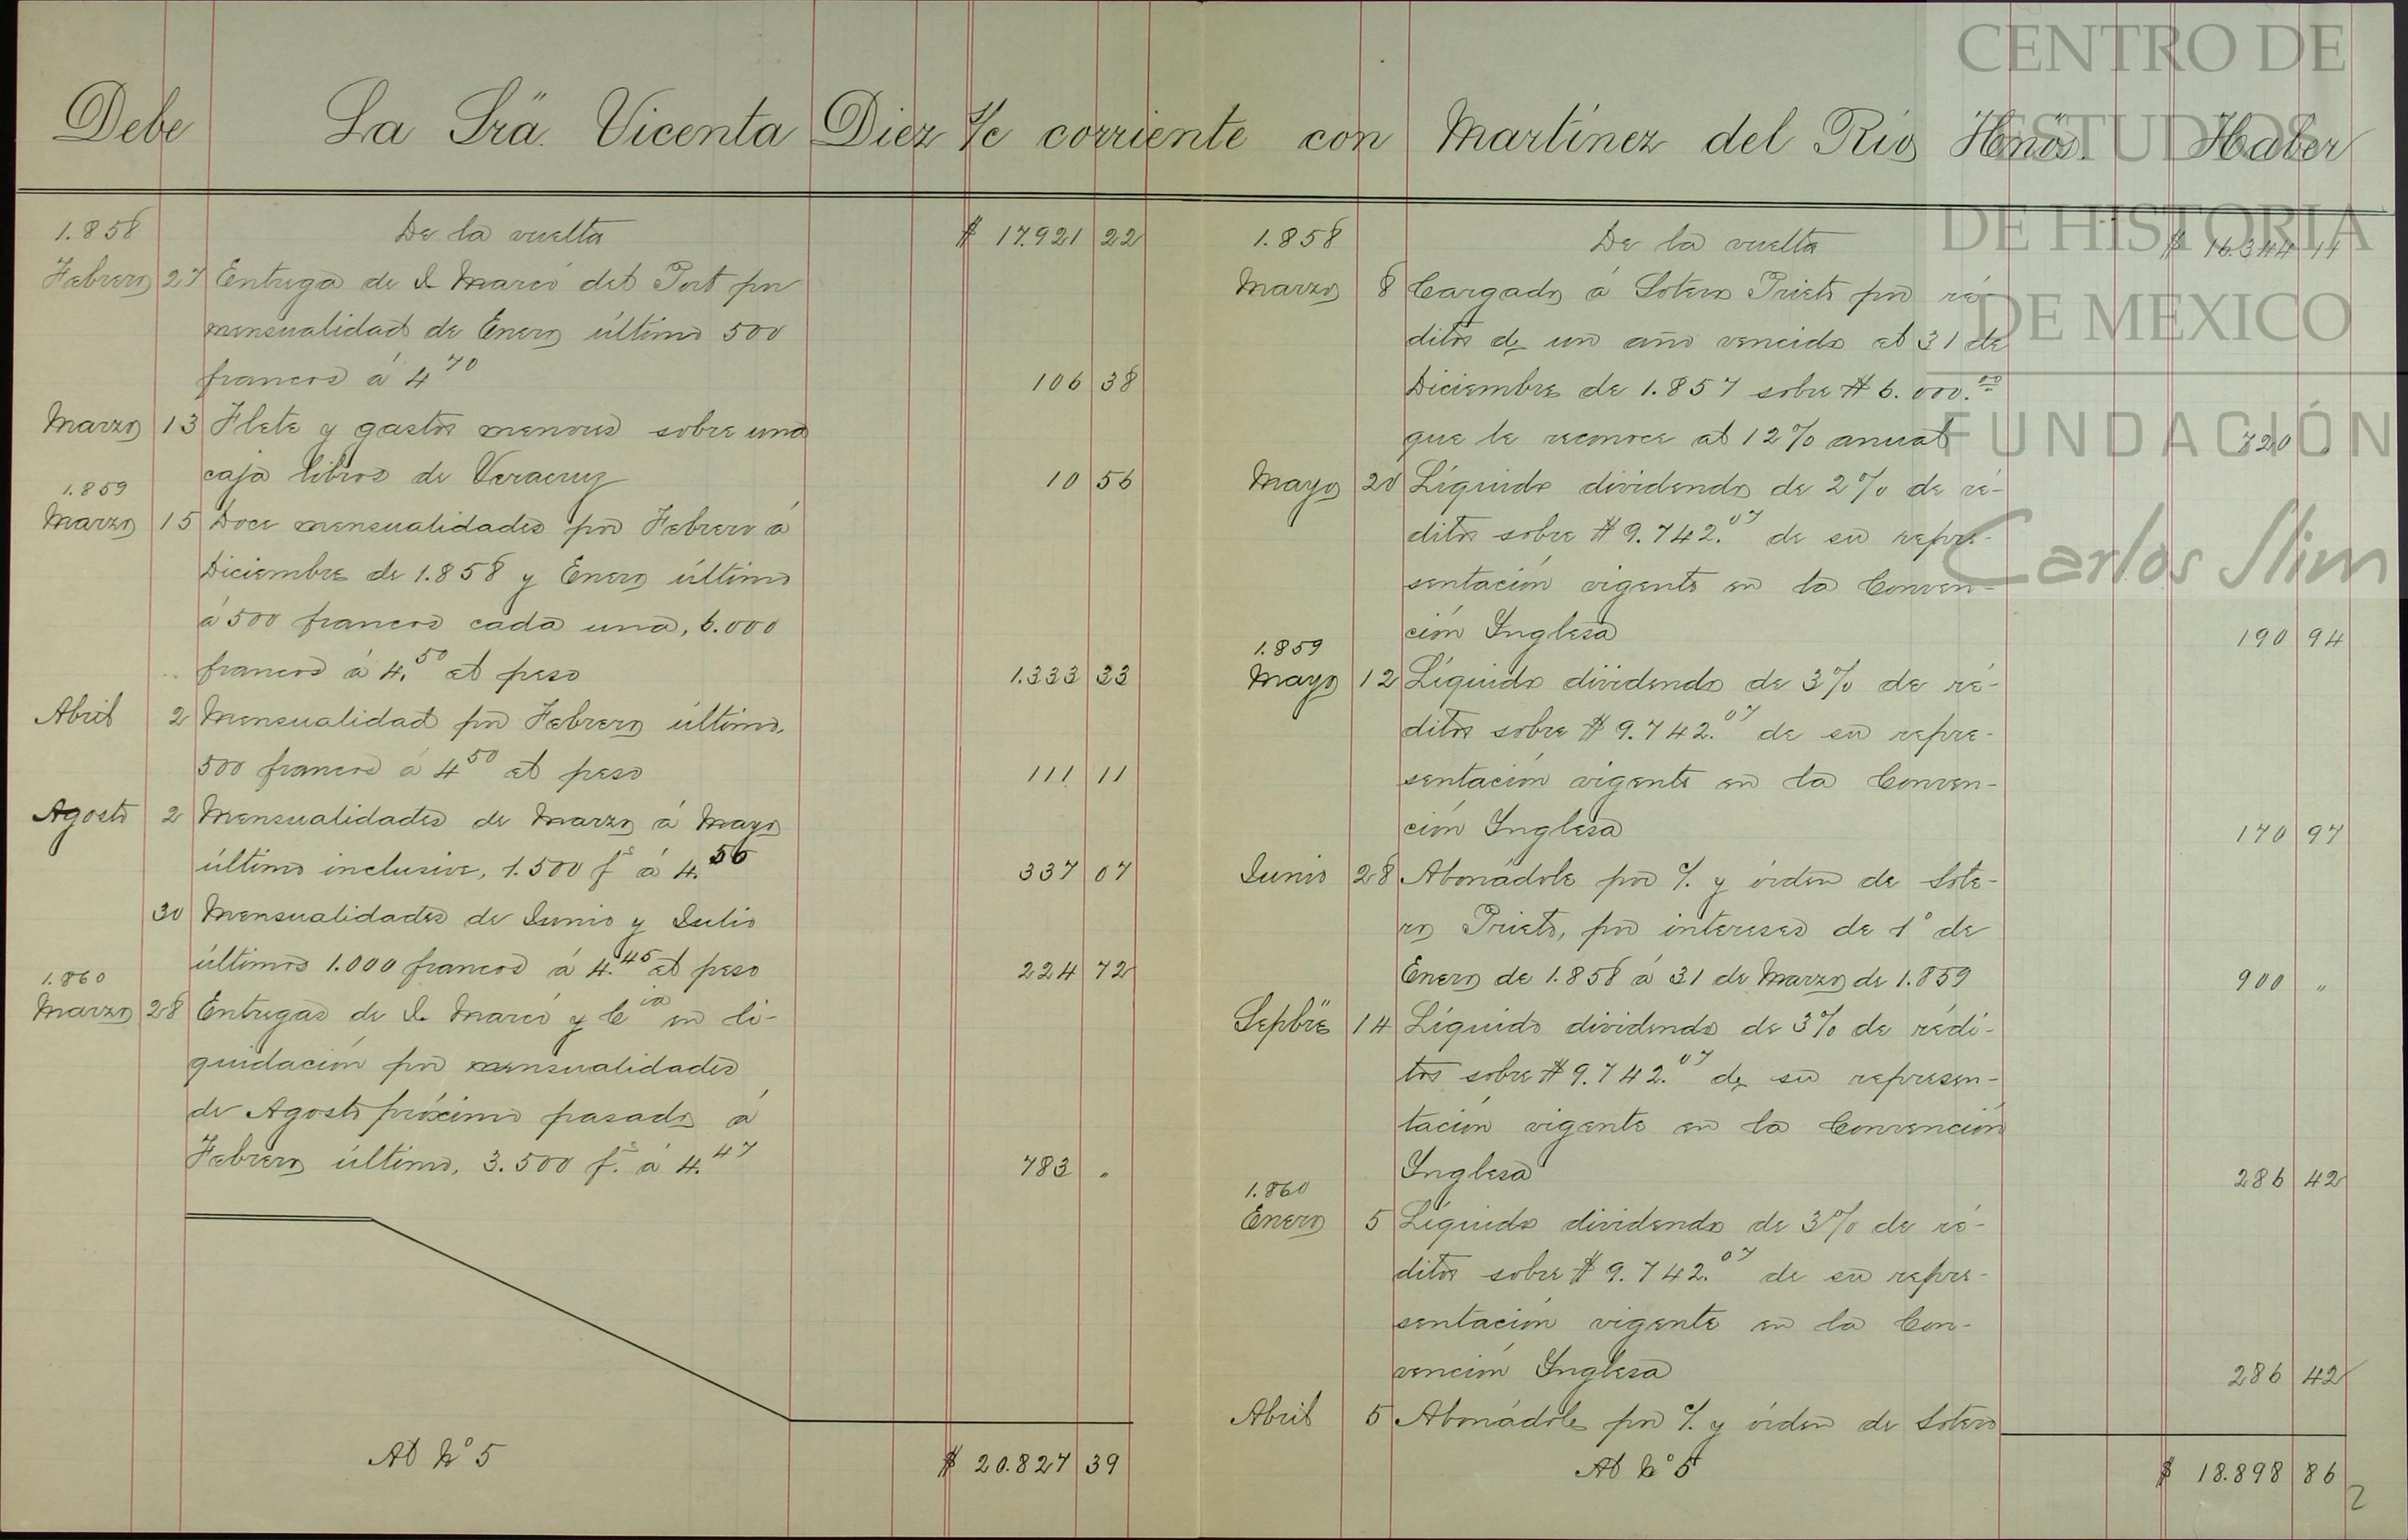 Debe La Srä. Vicenta Diez c/c corriente con Martínez del Rio Hnös. Haber
1.858 De la vuelta $ 17.921 22
Febrero 27 Entrega de J. Marcó del Pont por
mensualidad de Enero último 500
francos á 4 70 106 38
Marzo 13 Flete y gastos menores sobre una
caja libros de Veracruz 10 56
1.859
Marzo 15 Doce mensualidades por Febrero á
Diciembre de 1.858 y Enero último
á 500 francos cada una, 6.000
francos á 4. 50 al peso 1.333 33
Abril 2 Mensualidad por Febrero último.
500 francos á 4 50 al peso 111 11
Agosto 2 Mensualidades de Marzo á Mayo
último inclusive, 1.500 fs á 4. 337 07
30 Mensualidades de Junio y Julio
últimos 1.000 francos á 4. 45 al peso 224 72
1.860
Marzo 28 Entregas de J. Marcó y Cia en li-
quidación por mensualidades
de Agosto próximo pasado á
Febrero último, 3.500 fs. á 4. 47 783 "
Al No 5 $ 20.827 39
1.858 De la vuelta $ 16.344 11
Marzo 8 Cargado á Sotero Prieto por ré-
ditos de un año vencido al 31 de
Diciembre de 1.857 sobre $ 6.000.00
que le reconoce al 12% anual 720 "
Mayo 20 Líquido dividendo de 2% de ré-
ditos sobre $ 9.742.07 de su repre-
sentación vigente en la Conven-
ción Inglesa 190 94
1.859
Mayo 12 Líquido dividendo de 3% de ré-
ditos sobre $ 9.742.07 de su repre-
sentación vigente en la Conven-
ción Inglesa 170 97
Junio 28 Abonádole por c/. y órden de Sote-
ro Prieto, por intereses de 1° de
Enero de 1.858 á 31 de Marzo de 1.859 900 "
Sepbrë 14 Líquido dividendo de 3% de rédi-
tos sobre $ 9.742.07 de su represen-
tación vigente en la Convención
Inglesa 286 42
1.860
Enero 5 Líquido dividendo de 3% de ré-
ditos sobre $ 9.742.07 de su repre-
sentación vigente en la Con-
vención Inglesa 286 42
Abril 5 Abonádole por c/. y órden de Sotero
Al No 5 $ 18.898 86
2
CENTRO DE
ESTUDIOS
DE HISTORIA
DE MEXICO
FUNDACIÓN
Carlos Slim